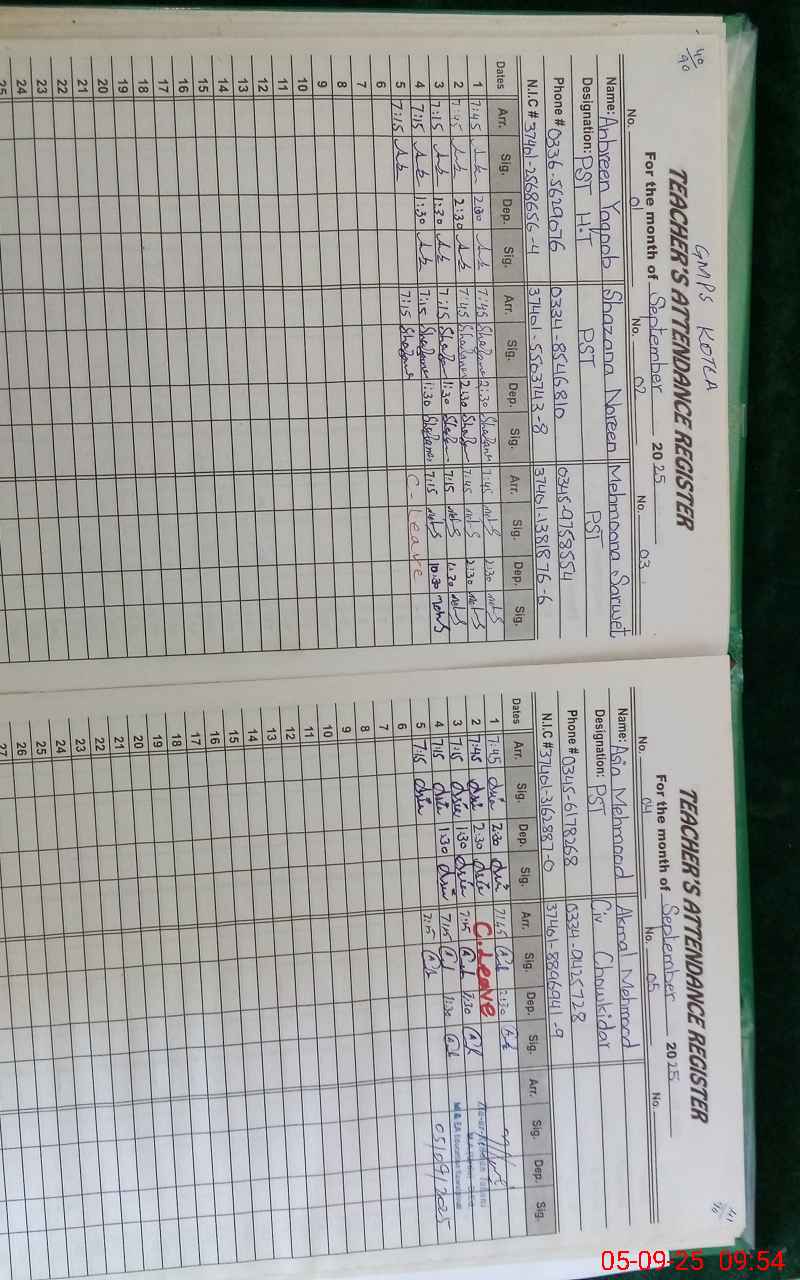 40/40
GMPS KOTLA
TEACHER'S ATTENDANCE REGISTER
For the month of September 2025
No. 01 No. 02 No. 03
Name: Anbreen Yaqoob Shazana Noreen Mehmoona Sarwet
Designation: PST H.T PST PST
Phone # 0336-5629076 0334-8546810 0345-9758554
N.I.C # 37401-2568656-4 37401-5503743-8 37401-1381876-6
Dates Arr. Sig. Dep. Sig. Arr. Sig. Dep. Sig. Arr. Sig. Dep. Sig.
1 7:45 2:30 7:45 2:30 7:45 2:30
2 7:45 2:30 7:45 2:30 7:45 2:30
3 7:15 1:30 7:15 1:30 7:15 1:30
4 7:15 1:30 7:15 1:30 7:15 10:30
5 7:15 7:15 C-Leave
6
7
8
9
10
11
12
13
14
15
16
17
18
19
20
21
22
23
24
25
TEACHER'S ATTENDANCE REGISTER
For the month of September 2025
No. 04 No. 05 No.
Name: Asia Mehmood Akmal Mehmood
Designation: PST Civ Chowkidar
Phone # 0345-6178268 0334-9425728
N.I.C # 37401-3162887-0 37401-8896941-9
Dates Arr. Sig. Dep. Sig. Arr. Sig. Dep. Sig. Arr. Sig. Dep. Sig.
1 7:45 2:30 7:45 2:30
2 7:45 2:30 C.Leave
3 7:15 1:30 7:15 1:30
4 7:15 1:30 7:15 1:30
5 7:15 7:15
05/09/2025
6
7
8
9
10
11
12
13
14
15
16
17
18
19
20
21
22
23
24
25
26
27
05-09-25 09:54